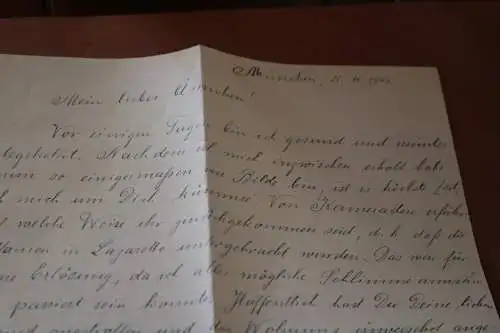 München, 11. 11. 
Mein liebes Ännchen!
Vor einigen Tagen bin ich gesund und munter
Nachdem ich mich inzwischen erholt habe
so einigermaßen im Bilde bin, ist es höchste Zeit,
ich mich um Dich kümmere. Von Kameraden erfuhr
welche Weise Ihr zurückgekommen seid, d. h. daß die
in Lazarette untergebracht wurden. Das war für
Erlösung, da ich alle mögliche Schlimme
passiert sein könnte. Hoffentlich hast Du Deine lieben
angetroffen und die Wohnung unversehrt